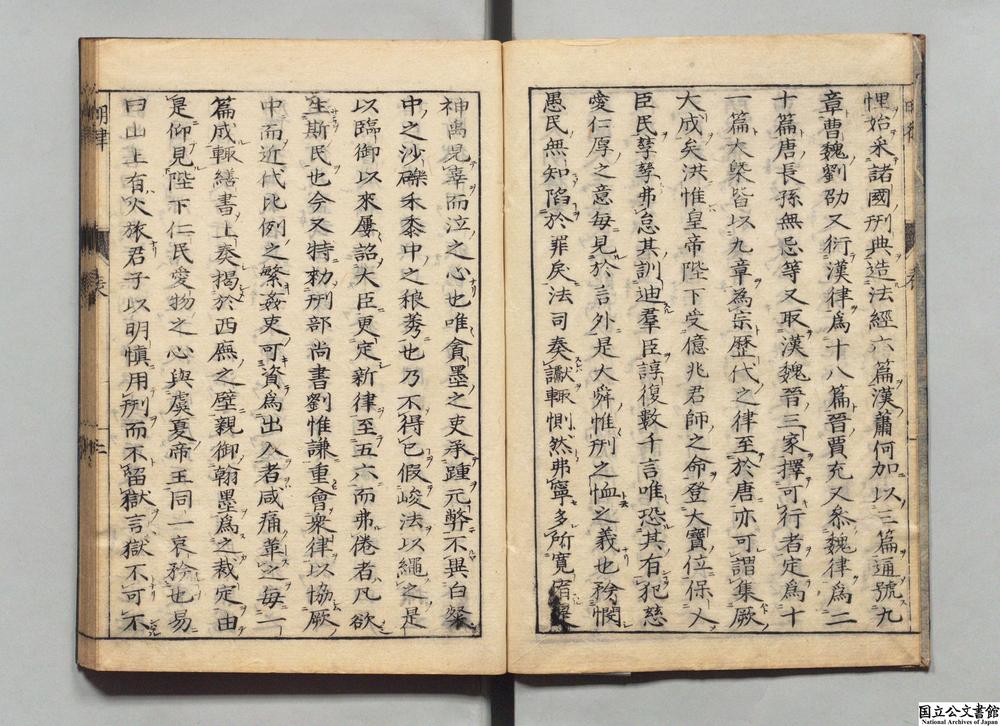 悝始采諸國刑典造法經六篇漢蕭何加以三篇通號九
章曹魏劉劭又衍漢律爲十八篇晉賈充又參魏律爲二
十篇唐長孫無忌等又取漢魏晉三家擇可行者定爲十
一篇大槩皆以九章為宗歷代之律至於唐亦可謂集厥
大成矣洪惟皇帝陛下受億兆君師之命登大寶位保人
臣民孳孳弗怠其訓迪羣臣諄復數千言唯恐其有犯慈
愛仁厚之意每見於言外是大舜惟刑之恤之義也矜憫
愚民無知陷於罪戾法司奏讞輙惻然弗寧多所寬宥
神禹見辜而泣之心也唯貪墨之吏承踵元弊不異白粲
中之沙礫禾黍中之稂莠也乃不得已假峻法以繩之是
以臨御以來屢詔大臣更定新律至五六而弗倦者凡欲
生斯民也今又特勑刑部尚書劉惟謙重會衆律以協厥
中而近代比例之繁姦吏可資爲出入者咸痛革之每一
篇成輙繕書上奏揭於西廡之壁親御翰墨爲之裁定由
是仰見陛下仁民愛物之心與虞夏帝王同一哀矜也易
曰山上有火旅君子以明愼用刑而不留獄言獄不可不
明律
三
国立公文書館
National Archives of Japan